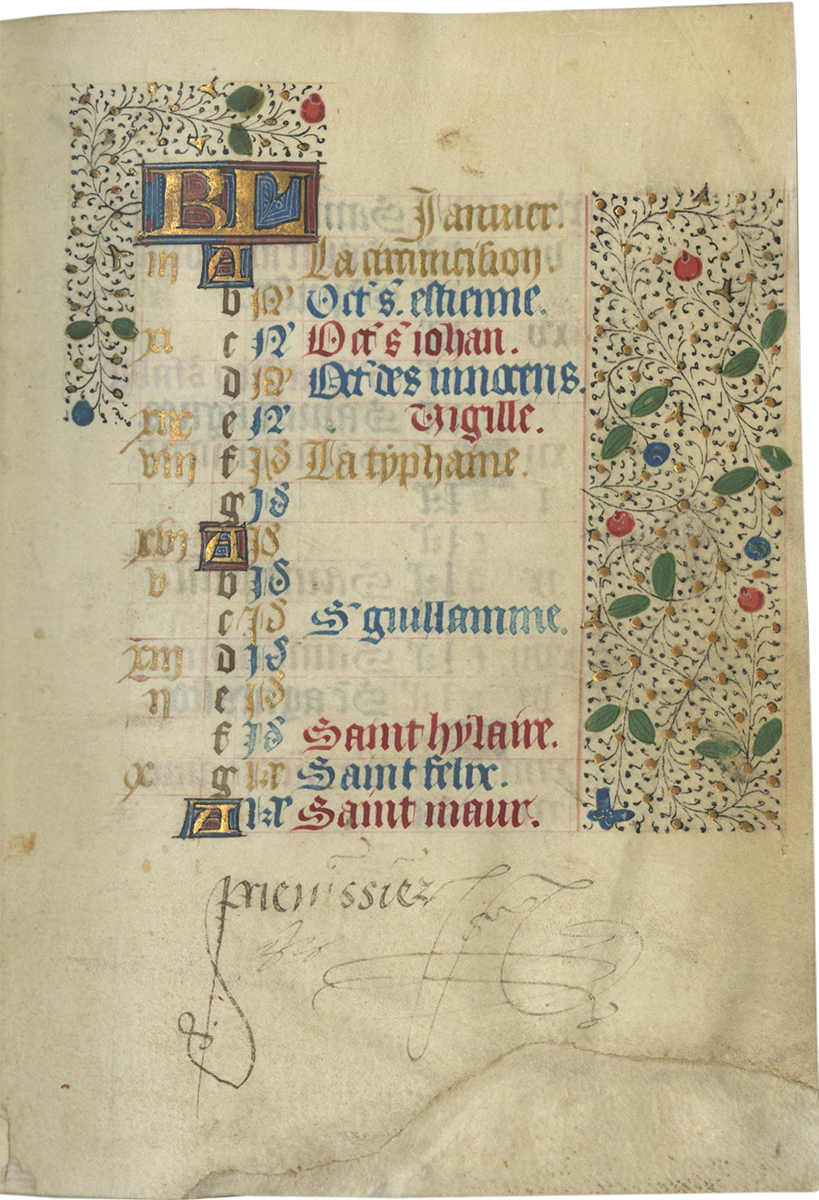 KL Januier.
iii A La circuncision.
b N' Oct' s'. estienne.
xi c N' Oct' s' iohan.
d N' Oct' des innocens.
xix e N' Vigille.
viii f Id La typhaine.
g Id
xvi A Id
v b Id
c Id S' guillamme.
xiii d Id
ii e Id
f Id Saint hylaire.
x g kl' Saint felix.
A kl' Saint maur.